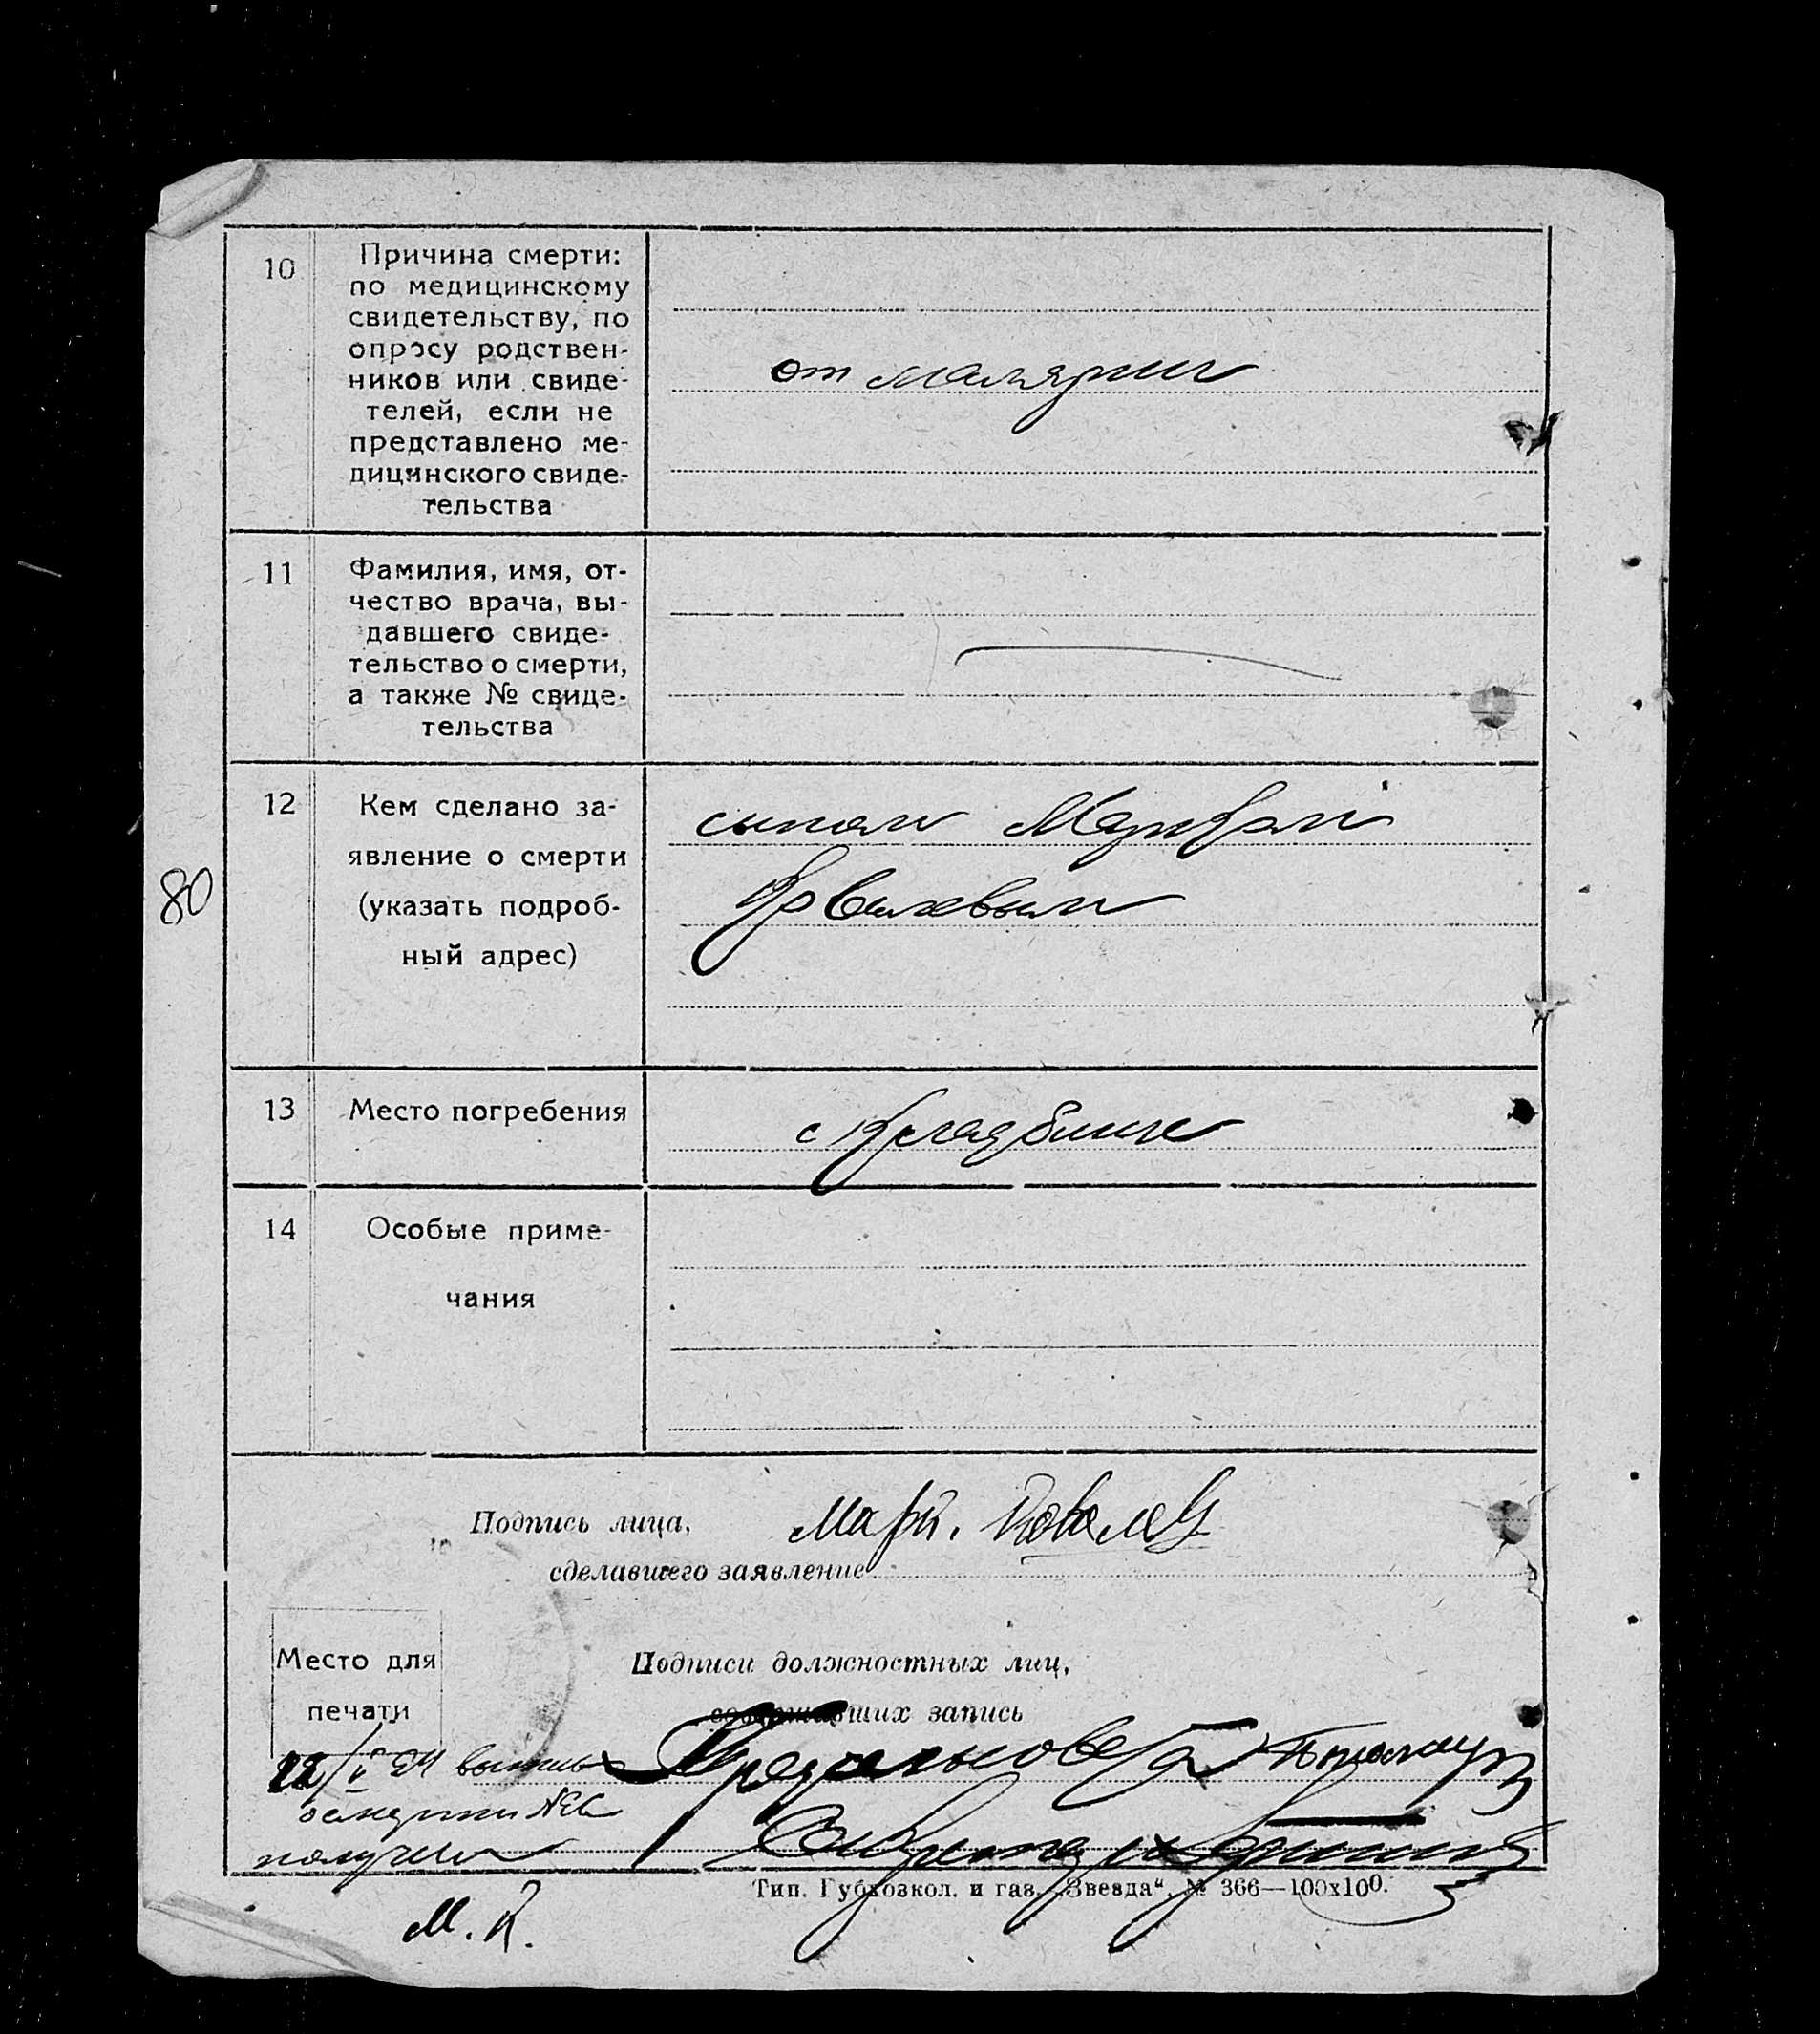 10
Причина смерти:
по медицинскому
свидетельству, по
опросу родствен-
ников или свиде-
телей, если не
представлено ме-
дицинского свиде-
тельства
от малярии
11
Фамилия, имя, от-
чество врача, вы-
давшего свиде-
тельство о смерти,
а также № свиде-
тельства
12
Кем сделано за-
явление о смерти
(указать подроб-
ный адрес)
сыном
Ковалевым
80
13
Место погребения
14
Особые приме-
чания
Подпись лица,
сделавшего заявление
Марк. Ковалев
Место для
печати
Подписи должностных лиц,
совершивших запись
получил
Секретарь
Тип. Губхозкол. и газ. „Звезда“. № 366—100х100.
М. К.